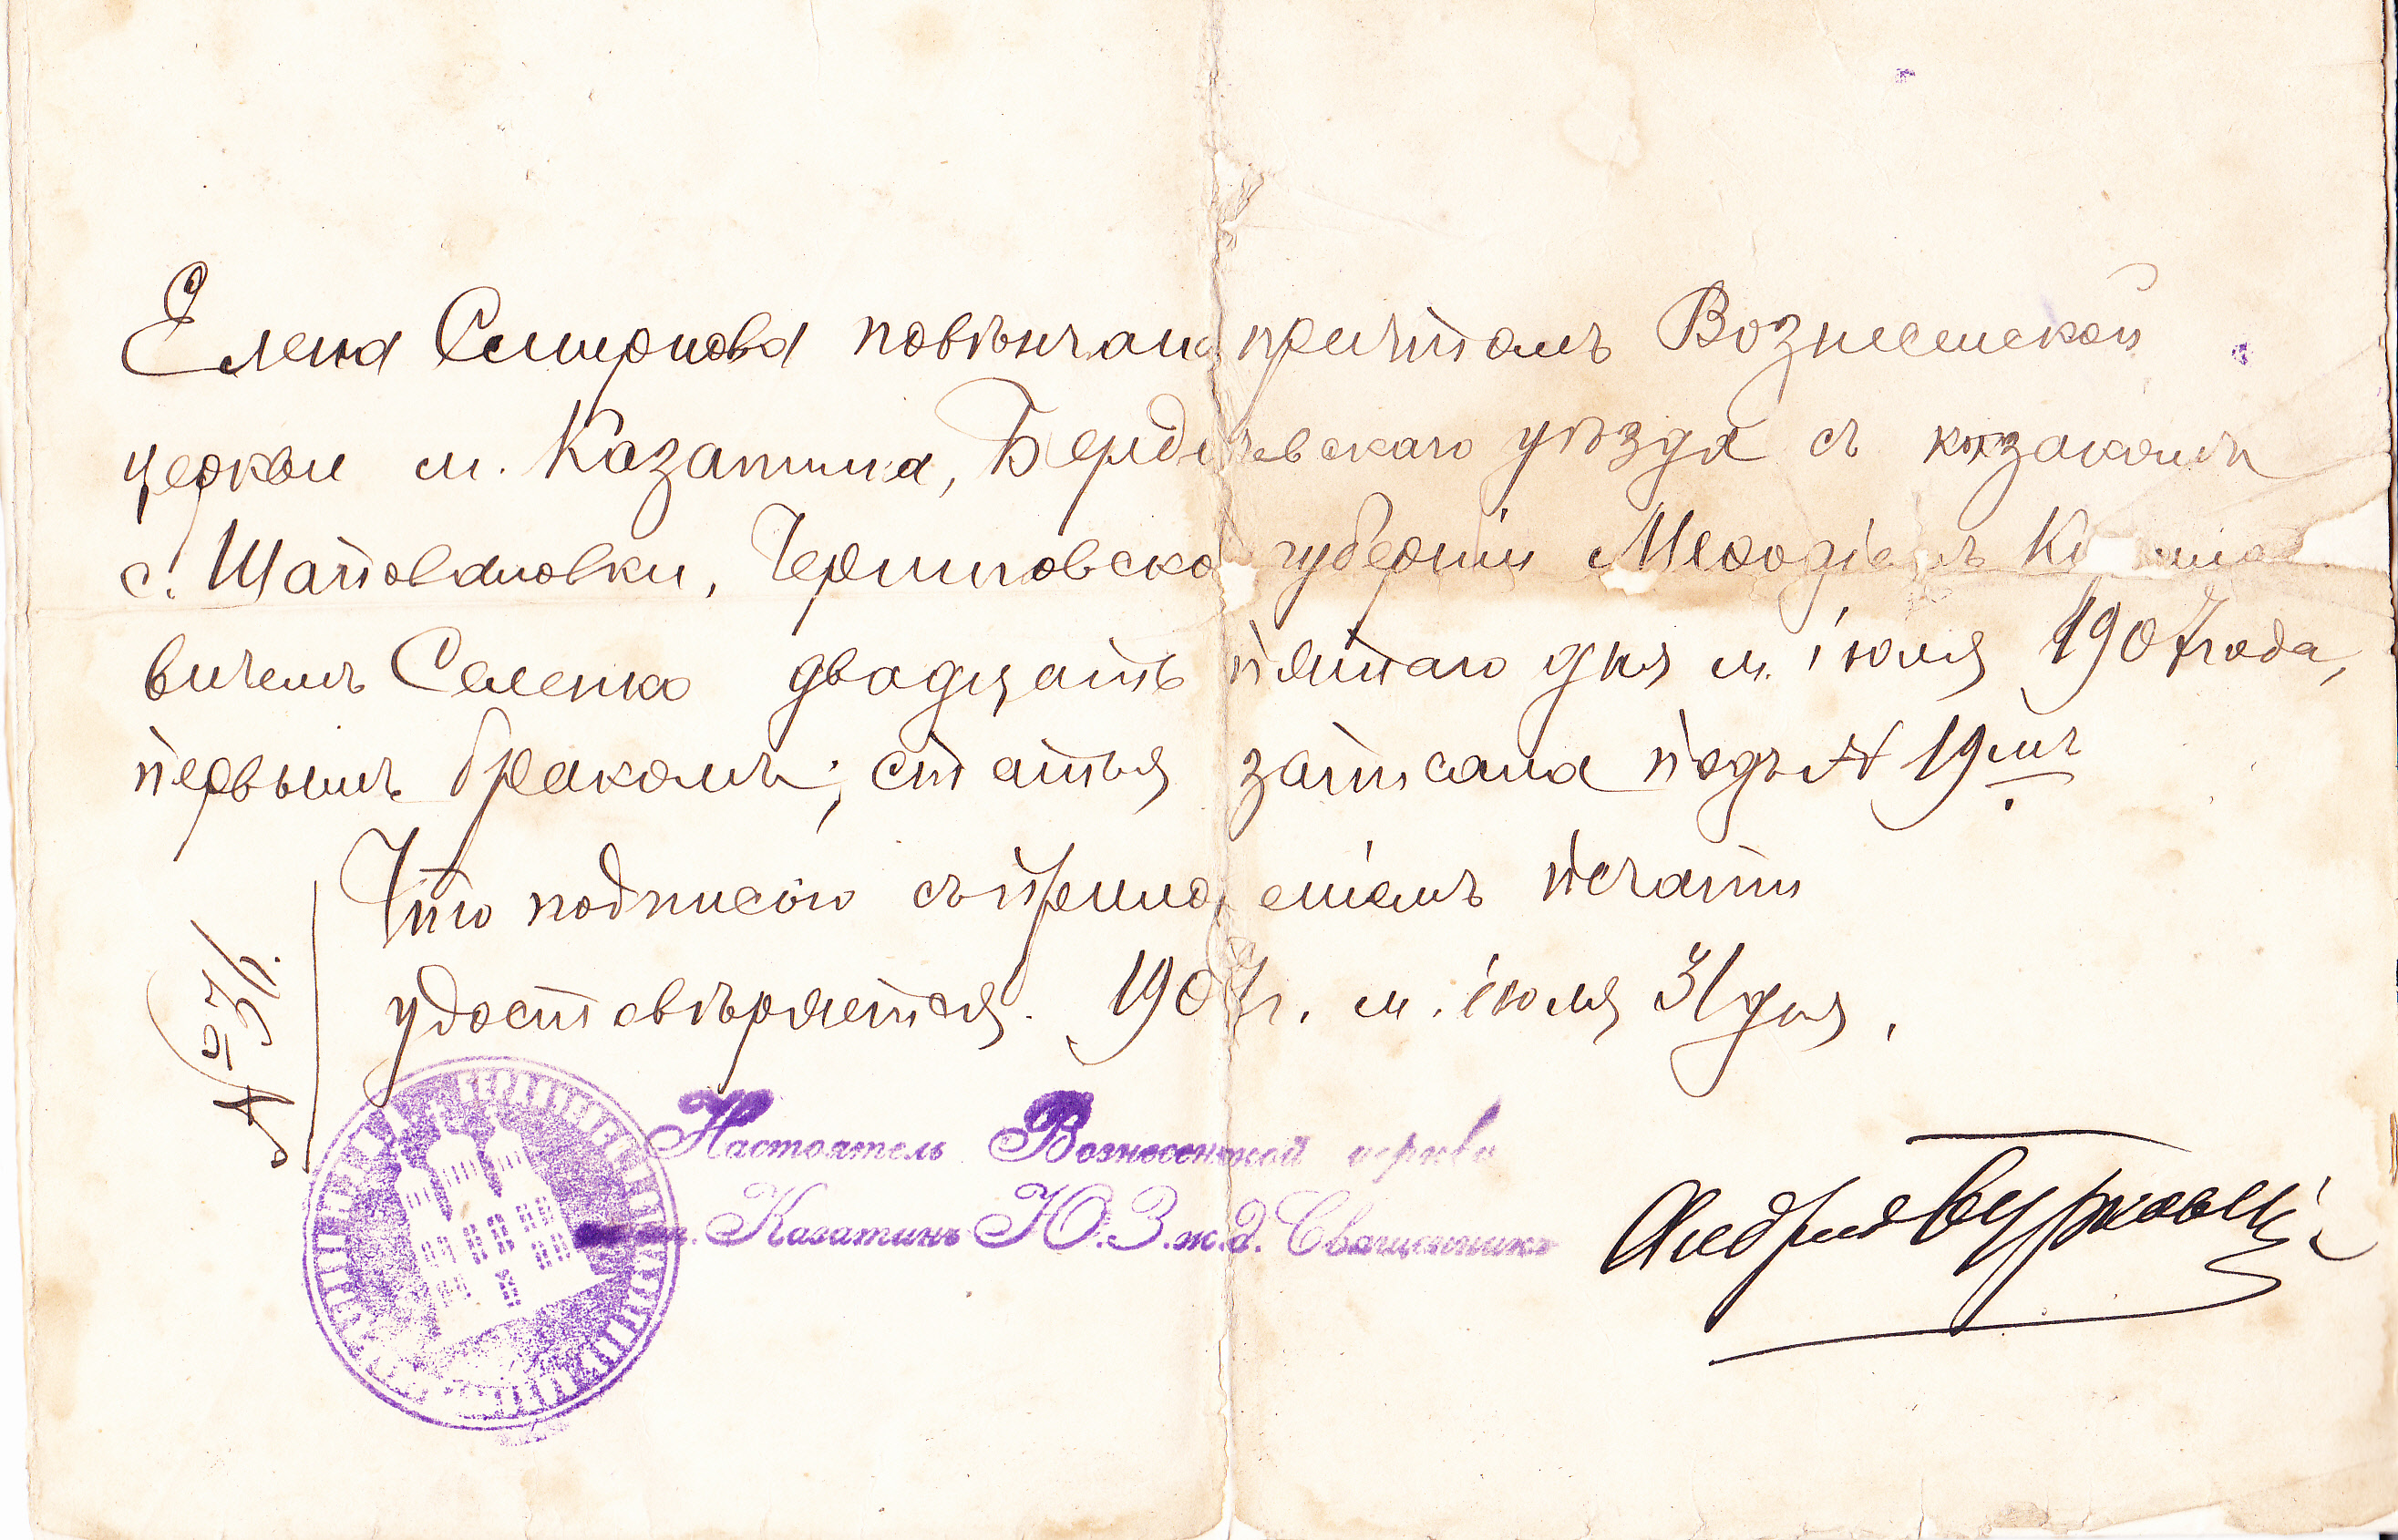 Елена Смирнова повѣнчана причтомъ Вознесенской
церкви м. Казатина, Бердичевскаго уѣзда съ козакомъ
с. Шаповаловки, Черниговской губерніи Меѳодіемъ
вичемъ Саленко двадцать пятаго дня м. іюля 1907 года,
первымъ бракомъ; статья записана подъ № 19мъ
Что подписью съ приложеніемъ печати
удостовѣряется. 1907 г. м. іюля 31 дня.
№ 36.
Настоятель Вознесенской церкви
ст. Казатинъ Ю.З.ж.д. Священникъ
Андрей